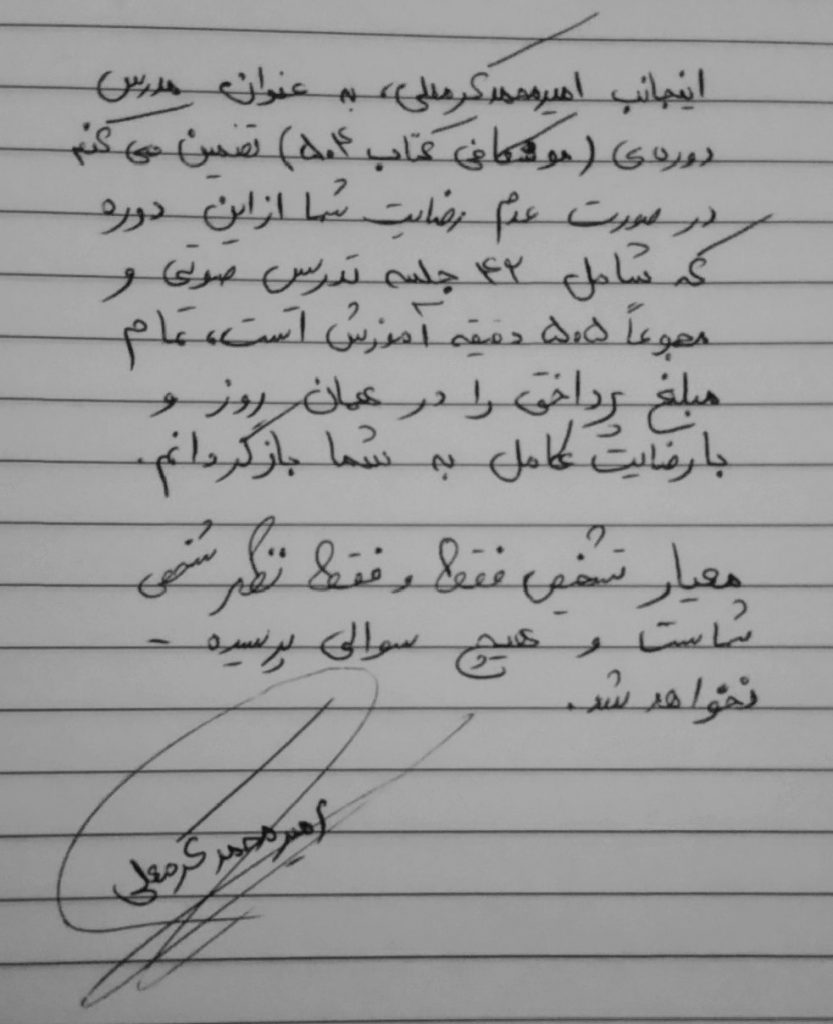 اینجانب امیرمحمد کرمعلی، به عنوان مدرس
دوره‌ی (موشکافی کتاب ۵۰۴) تضمین می کنم
در صورت عدم رضایت شما از این دوره
که شامل ۴۲ جلسه تدریس صوتی و
مجموعاً ۵۰۵ دقیقه آموزش است، تمام
مبلغ پرداختی را در همان روز و
با رضایت کامل به شما بازگردانم.
معیار تشخیص فقط و فقط نظر شخصی
شماست و هیچ سوالی پرسیده -
نخواهد شد.
امیرمحمد کرمعلی